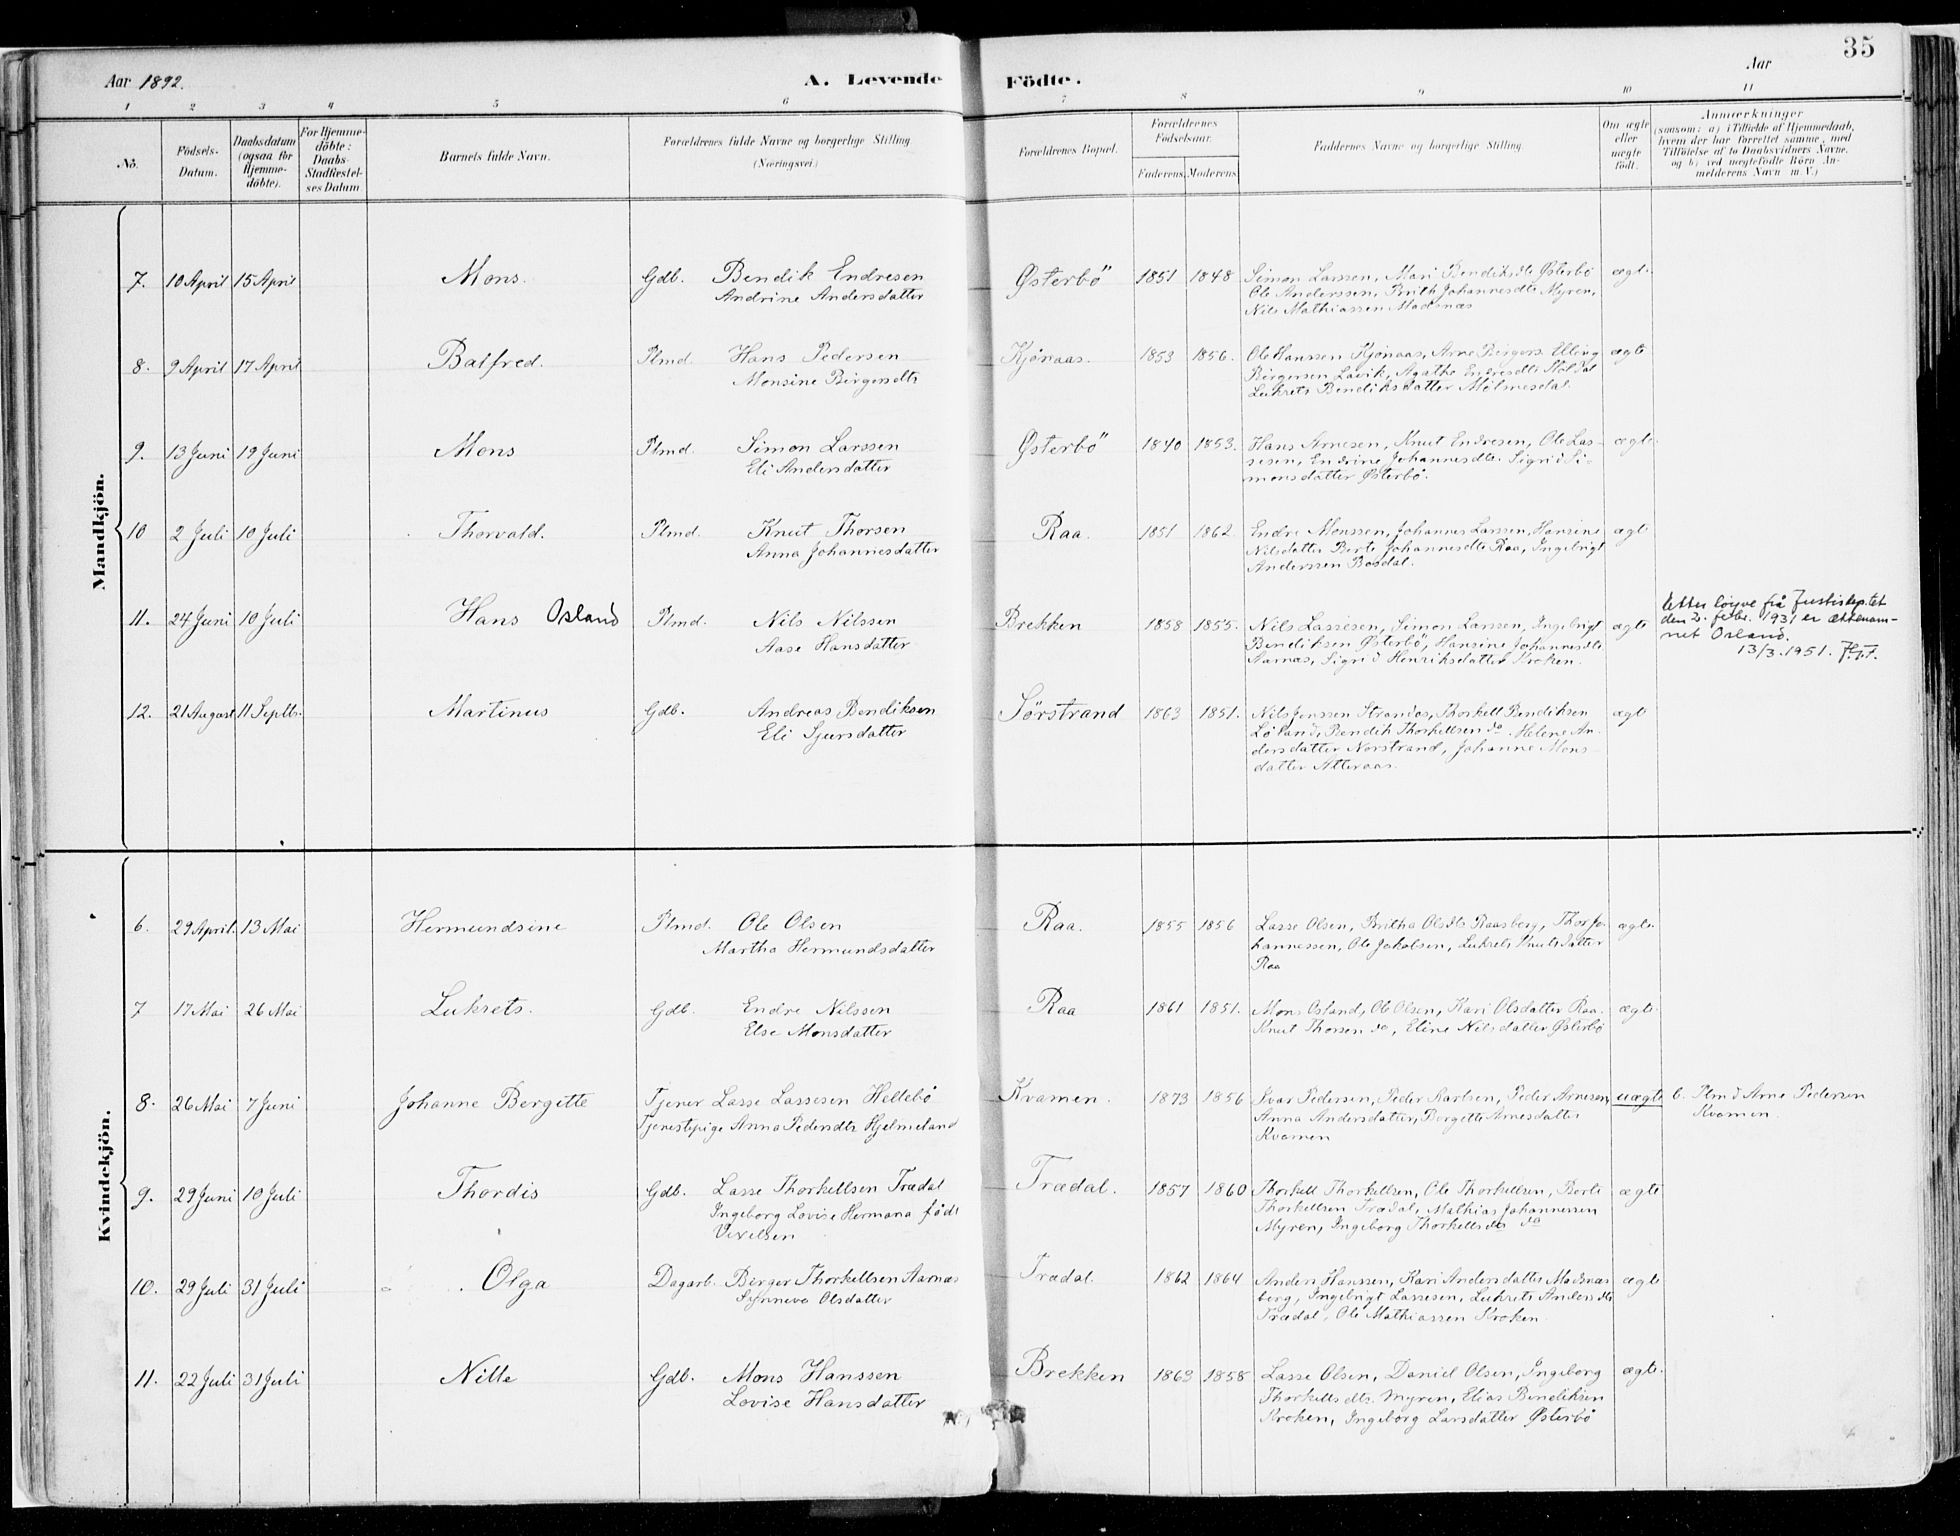 35
Aar 1892.
A. Levende Födte.
Aar
1 2 3 4 5 6 7 8 9 10 11
No.
Födsels-
Datum.
Daabsdatum
(ogsaa for
Hjemme-
döbte).
For Hjemme-
döbte:
Daabs-
Stadfæstel-
ses Datum.
Barnets fulde Navn.
Forældrenes fulde Navne og borgerlige Stilling
(Næringsvei.)
Forældrenes Bopæl.
Forældrenes
Födselsaar.
Faderens. Moderens.
Faddernes Navne og borgerlige Stilling.
Om ægte
eller
uægte
födt.
Anmærkninger
(saasom: a) i Tilfælde af Hjemmedaab,
hvem der har forrettet samme, med
Tilföielse af to Daabsvidners Navne,
og b) ved uægtefödte Börn An-
melderens Navn m. V.)
Mandkjön.
7. 10 April 15 April Mons. Gdb. Bendik Endresen
Andrine Andersdatter
Østerbö 1851 1848 Simon Larssen, Mari Bendiksdtr Østerbö
Ole Anderssen, Brith Johannesdtr Myren,
Nils Mathiassen Madsnæs
ægte
8. 9 April 17 April Batfred. Plmd. Hans Pedersen
Monsine Birgersdtr
Kjønaas. 1853 1856. Ole Hanssen Kjønaas, Arne Birgers. Elling
Birgersen Lavik, Agathe Endresdtr Støldal
Lukrets Bendiksdatter Mølmesdal.
ægte
9. 13 Juni 19 Juni Mons Plmd. Simon Larssen
Eli Andersdatter
Østerbö 1840 1853. Hans Arnesen, Knut Endresen, Ole Las-
sesen, Endrine Johannesdtr. Sigrid Si-
monsdatter Østerbö.
ægte
10 2 Juli 10 Juli Thorvald. Plmd. Knut Thorsen
Anna Johannesdatter
Raa. 1851 1862. Endre Monssen, Johannes Larssen, Hansine
Nilsdatter Berte Johannesdtr Raa, Ingebrigt
Anderssen Bosdal.
ægte
11. 24 Juni 10 Juli Hans Osland Plmd. Nils Nilssen
Aase Hansdatter
Brekken 1858 1855. Nils Lassesen, Simon Larssen, Ingebrigt
Bendiksen Østerbö, Hansine Johannesdtr
Aarnæs, Sigrid Henriksdatter Kroken.
ægte
Etter löyve frå Justisdep.tet
den 2. febr. 1931 er ættenam-
net Osland.
13/3.1951.
12. 21 August 11 Septb. Martinus Gdb. Andreas Bendiksen
Eli Sjursdatter
Sörstrand 1863 1851. Nils Jenssen Strandos, Thorkell Bendiksen
Löland, Bendik Thorkellsen do. Helene An-
dersdatter Norstrand, Johanne Mons-
datter Atteraas.
ægte
Kvindekjön.
6. 29 April 13 Mai Hermundsine Plmd. Ole Olsen
Martha Hermundsdatter
Raa. 1855 1856 Lasse Olsen, Britha Olsdtr Raasberg, Thor Jo-
hannessen, Ole Jakobsen, Lukrets Knutsdatter
Raa
ægte
7 17 Mai 26 Mai Lukrets. Gdb. Endre Nilssen
Else Monsdatter
Raa 1861 1851. Mons Osland, Ole Olsen, Kari Olsdatter Raa.
Knut Thorsen do, Eline Nilsdatter Østerbö
ægte
8. 26 Mai 7 Juni Johanne Bergitte Tjener Lasse Lassesen Hellebö
Tjenestepige Anna Pedersdtr Hjelmeland
Kvamen. 1873 1856 Ivar Pedersen, Peder Karlsen, Peder Arnesen,
Anna Andersdatter, Bergitte Arnesdatter
Kvamen
uægte b. Plmd Arne Pedersen
Kvamen.
9. 29 Juni 10 Juli Thordis Gdb. Lasse Thorkellsen Trædal
Ingeborg Lovise Hermana född
Vexelsen
Trædal. 1857 1860 Thorkell Thorkellsen, Ole Thorkellsen, Berte
Thorkellsen Trædal, Mathias Johannessen
Myren, Ingeborg Thorkellsdtr do
ægte
10. 29 Juli 31 Juli Olga Dagarb. Birger Thorkellsen Aarnæs
Synneva Olsdatter
Trædal. 1862 1864 Anders Hanssen, Kari Andersdatter Madsnæs
berg, Ingebrigt Lassesen, Lukrets Andersdtr
Trædal, Ole Mathiassen Kroken.
ægte
11. 22 Juli 31 Juli Nille Gdb. Mons Hanssen
Lovise Hansdatter
Brekken 1863 1858 Lasse Olsen, Daniel Olsen, Ingeborg
Thorkellsdtr. Myren, Elias Bendiksen
Kroken, Ingeborg Larsdatter Østerbö
ægte.